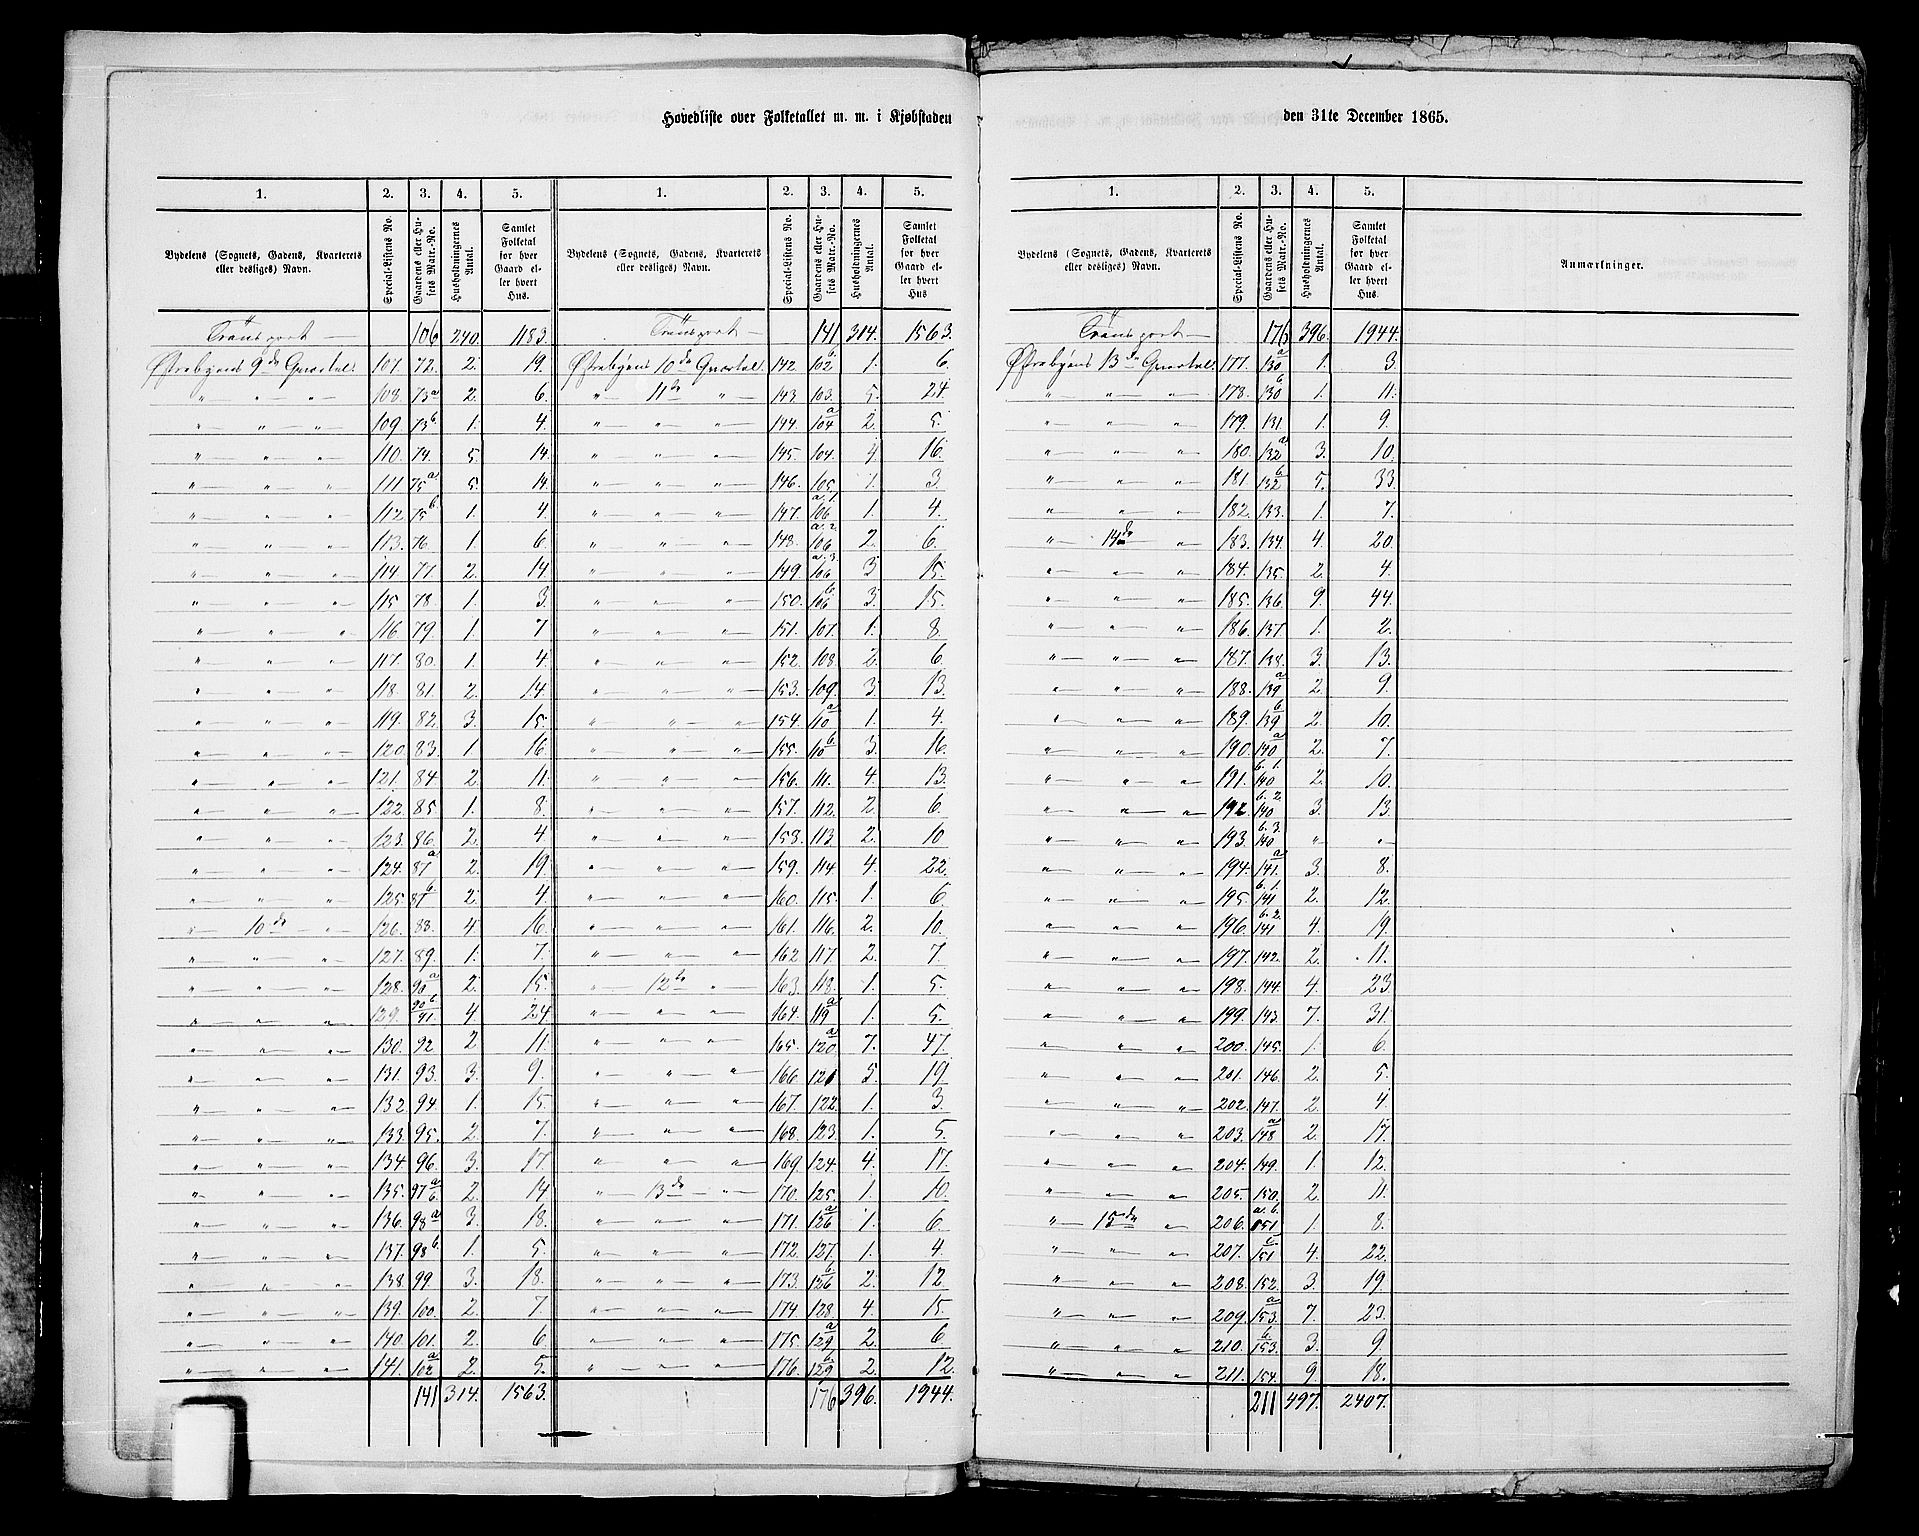 Hovedliste over Folketallet m. m. i Kjøbstaden den 31te December 1865.
1. 2. 3. 4. 5. 1. 2. 3. 4. 5.
Bydelens (Sognets, Gadens, Kvarterets eller desliges) Navn. Special-Listens No. Gaardens eller Husets Matr.-No. Husholdningernes Antal. Samlet Folketal for hver Gaard eller hvert Hus. Bydelens (Sognets, Gadens, Kvarterets eller desliges) Navn. Special-Listens No. Gaardens eller Husets Matr.-No. Husholdningernes Antal. Samlet Folketal for hver Gaard eller hvert Hus
Transport 106 240. 1183. Transport 141 314. 1563.
Østrebyens 9de Qvartal. 107. 72. 2. 19. Østrebyens 10de Qvartal. 142. 102 b. 1. 6.
" " " 108. 73 a 2. 6. " 11te " 143. 103. 5. 24.
" " " 109 73 b. 1. 4. " " " 144. 104 a 2. 5.
" " " 110. 74. 5. 14. " " " 145. 104. 4 16.
" " " 111 75 a. 5. 14. " " " 146. 105 1. 3.
" " " 112. 75 b. 1. 4. " " " 147. 106 a. 1. 1. 4.
" " " 113. 76. 1. 6. " " " 148. 106 a. 2. 2. 6.
" " " 114 77. 2. 14. " " " 149. 106 a. 3. 3 15.
" " " 115 78. 1. 3. " " " 150. 106 b. 3. 15.
" " " 116 79. 1. 7 " " " 151. 107. 1. 8.
" " " 117. 80. 1. 4. " " " 152. 108. 2. 6.
" " " 118. 81. 2. 14. " " " 153. 109. 3. 13.
" " " 119. 82. 3. 15. " " " 154. 110 a 1. 4.
" " " 120. 83. 1. 16. " " " 155. 110 b. 3. 16.
" " " 121. 84. 2. 11. " " " 156. 111. 4. 13.
" " " 122. 85. 1. 8. " " " 157. 112. 2 6.
" " " 123. 86. 2. 4. " " " 158. 113 2. 10
" " " 124. 87 a 2. 19. " " " 159. 114 4. 22.
" " " 125. 87 b. 2. 4. " " " 160. 115. 1. 6.
" 10de " 126. 88. 4. 16. " " " 161. 116. 2. 10.
" " " 127. 89. 1. 7. " " " 162 117. 2. 7.
" " " 128. 90 a 2. 15. " 12te " 163. 118. 1. 5.
" " " 129. 90 b. 91. 4. 24. " " " 164. 119 a 1. 5.
" " " 130. 92 2 11. " " " 165. 120 a 7. 47.
" " " 131. 93. 3. 9. " " " 166 121 5. 19
" " " 132. 94. 1. 15. " " " 167. 122. 1. 3.
" " " 133. 95. 2. 7. " " " 168. 123. 1. 5.
" " " 134. 96. 3. 17. " " " 169. 124. 4. 17.
" " " 135. 97 a b. 2. 14 " 13de " 170. 125. 1. 10.
" " " 136. 98 a 3. 18. " " " 171. 126 a 1. 6.
" " " 137. 98 b. 1. 5. " " " 172. 127. 1. 4.
" " " 138. 99. 3. 18. " " " 173. 126 b. 2. 12.
" " " 139. 100. 2. 7. " " " 174. 128 4. 15.
" " " 140. 101. 2. 6 " " " 175. 129 a 2. 6
" " " 141. 102 a 2. 5. " " " 176. 129 b. 2. 12.
141 314. 1563. 176 396. 1944.
1. 2. 3. 4. 5.
Bydelens (Sognets, Gadens, Kvarterets eller desliges) Navn. Special-Listens No. Gaardens eller Husets Matr.-No. Husholdningernes Antal. Samlet Folketal for hver Gaard eller hvert Hus. Anmærkninger.
Transport 176 396. 1944.
Østrebyens 13de Qvartal. 177. 130 a 1. 3.
" " " 178. 130 b 1. 11.
" " " 179. 131. 1. 9.
" " " 180. 132 a 3. 10.
" " " 181. 132 b. 5. 33.
" " " 182. 133. 1. 7.
" 14de " 183. 134. 4. 20.
" " " 184. 135. 2. 4.
" " " 185. 136. 9. 44.
" " " 186. 137. 1. 2.
" " " 187. 138. 3. 13.
" " " 188. 139 a 2. 9.
" " " 189. 139 b 2. 10.
" " " 190. 140 a 2. 7.
" " " 191. 140 b. 1. 2. 10.
" " " 192. 140 b. 2. 3 13.
" " " 193. 140 b. 3. " "
" " " 194. 141. a 3. 8.
" " " 195. 141 b. 1. 2. 12.
" " " 196. 141 b. 2. 4. 19.
" " " 197. 142. 2. 11.
" " " 198. 144. 4. 23
" " " 199. 143. 7. 31.
" " " 200. 145. 1. 6.
" " " 201. 146. 2. 5.
" " " 202. 147. 2. 4.
" " " 203. 148 a 2. 17.
" " " 204. 149. 1. 12.
" " " 205. 150. 2. 11.
" 15de " 206. 151 a. b. 1. 8.
" " " 207. 151 c. 4. 22.
" " " 208. 152. 3. 19.
" " " 209. 153. a 7. 23.
" " " 210. 153. b. 3. 9.
" " " 211. 154. 9 18.
211 497. 2407.